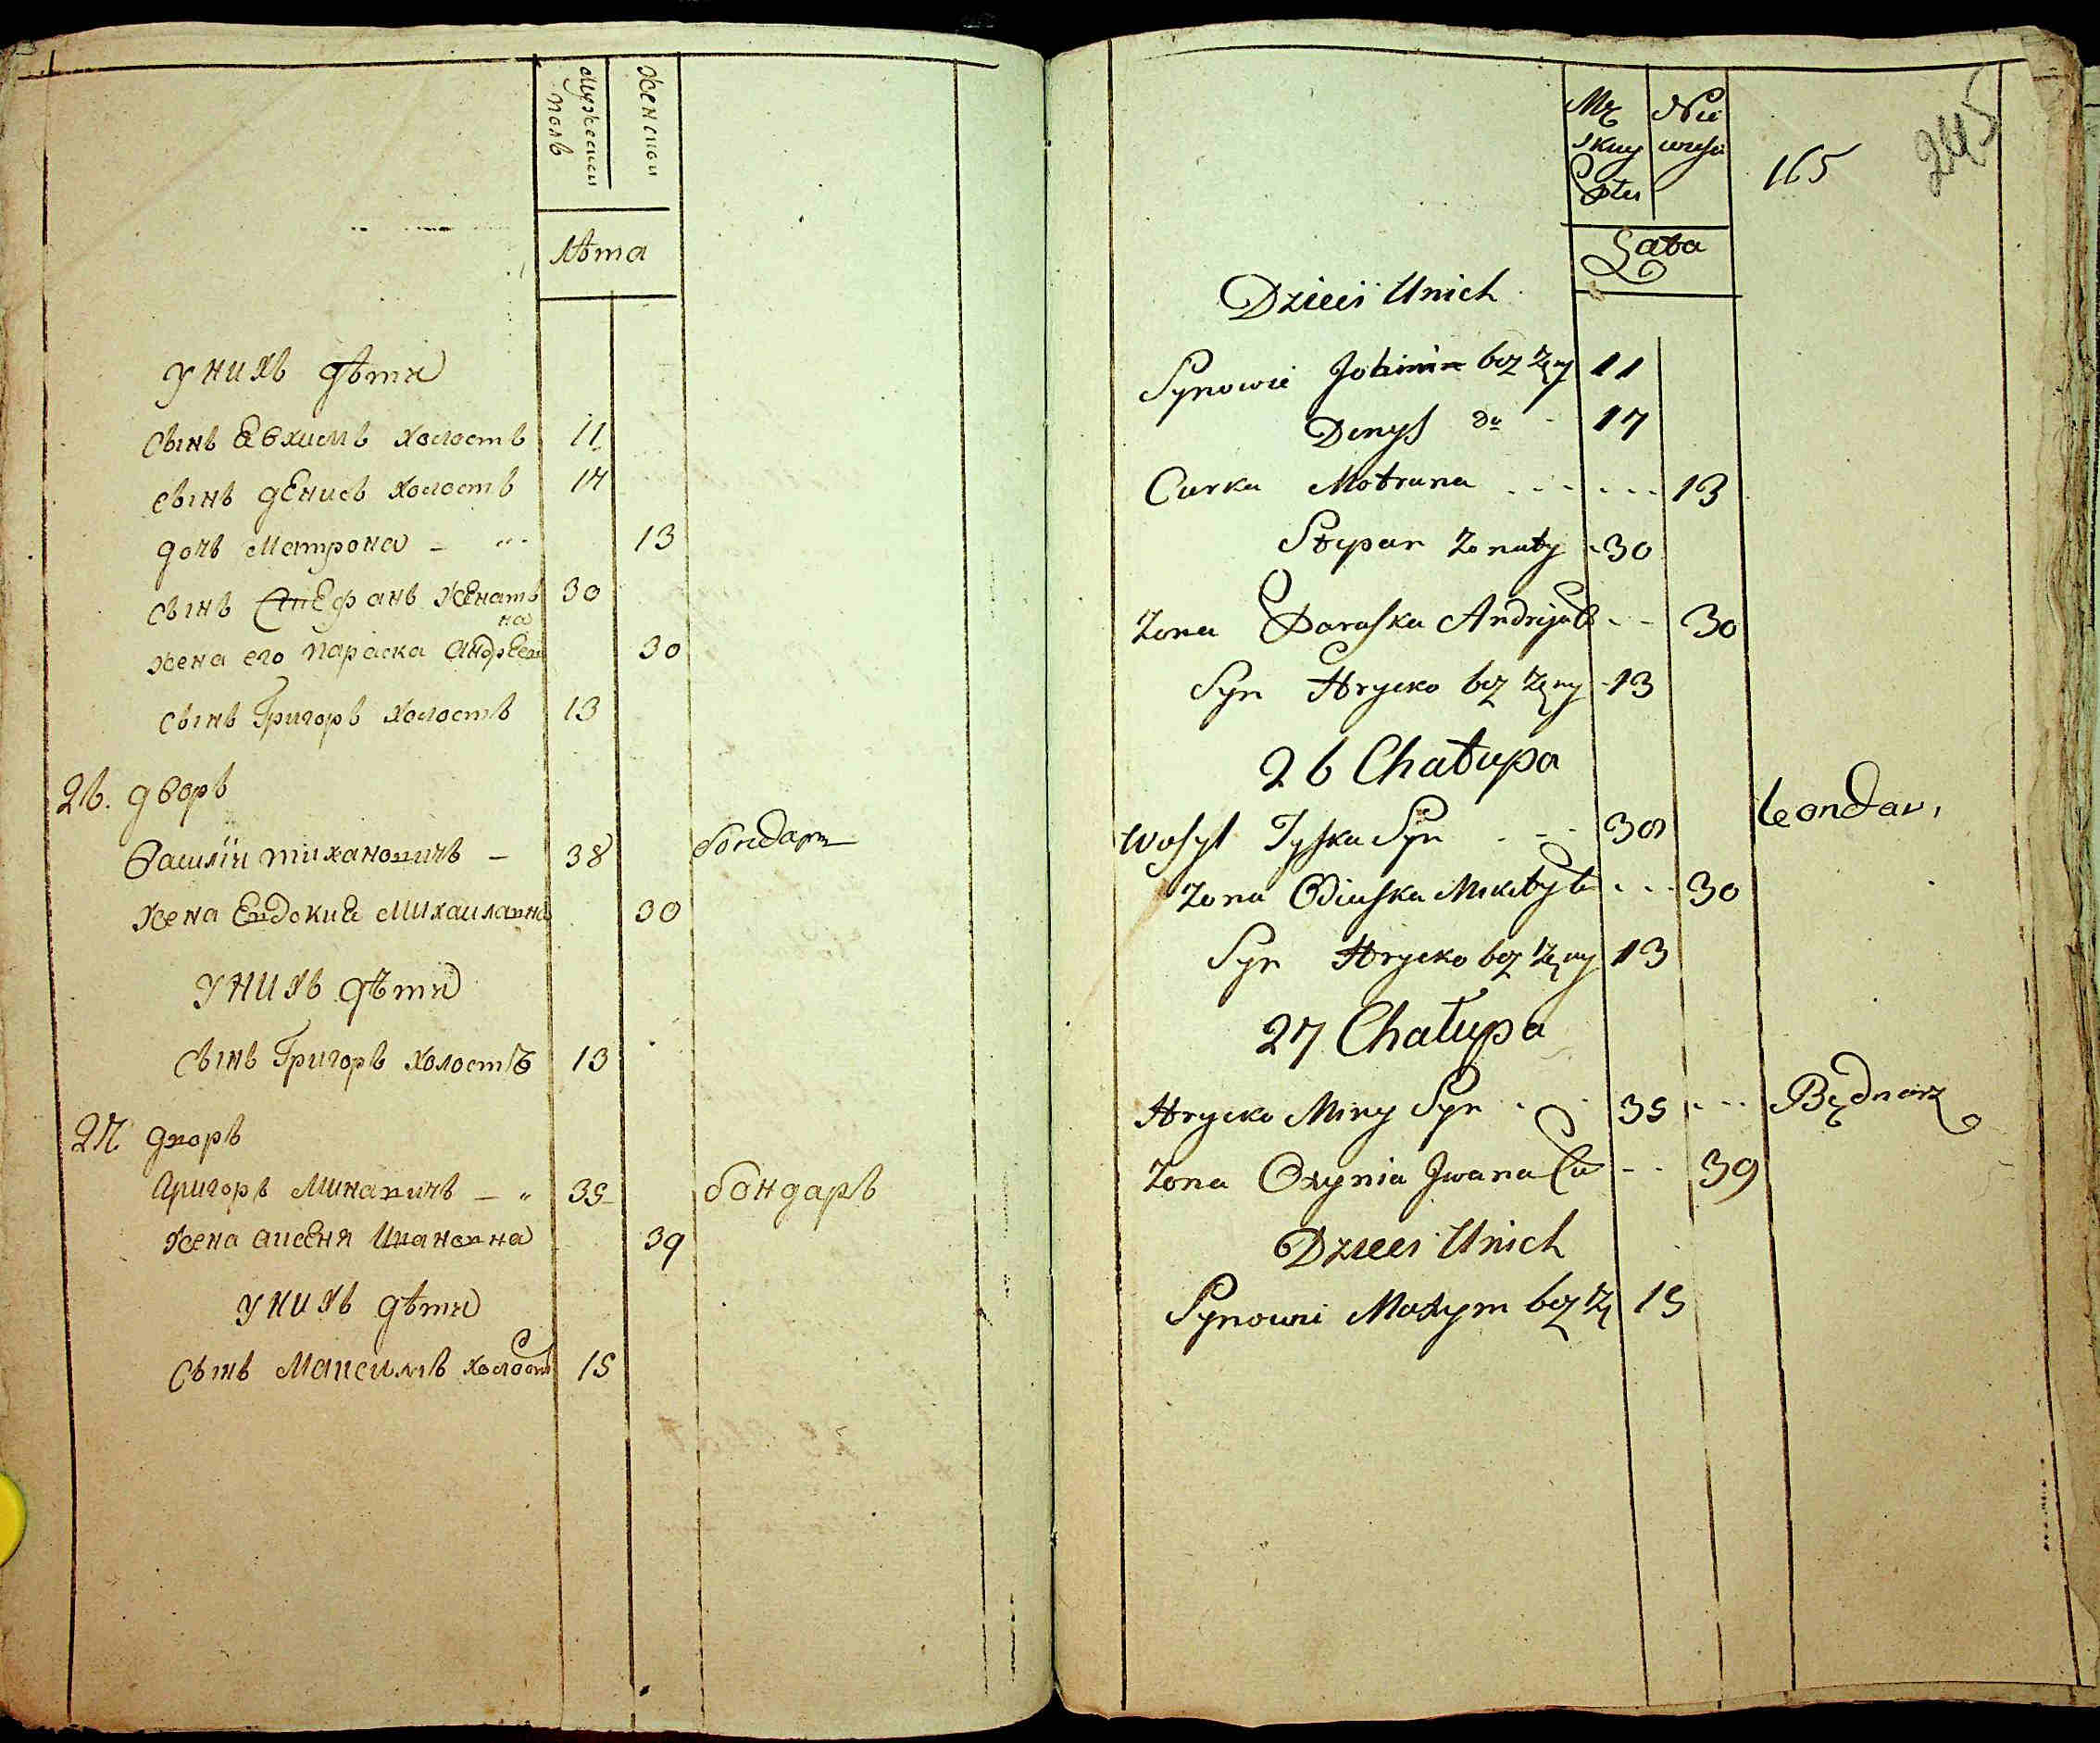 Мужеский
полъ
Женской
лѣта
у нихъ дѣти
сынъ Евхимъ холостъ 11
сынъ денисъ холостъ 17
дочь Матрона – 13
сынъ Стефанъ женатъ 30
жена его параска Андреева 30
на
сынъ Григоръ холостъ 13
26. дворъ
Василiй тихановичъ – 38 бондарь
жена Евдокиѣ Михаиловна 30
у нихъ дѣти
сынъ Григоръ холостъ 13
27 дворъ
Григоръ Миновичъ – 35 бондаръ
жена аксеня Ивановна 39
у нихъ дѣти
сынъ Максимъ холостъ 15
Mę
skiey
Płci
Nie
wiesci
165
245
Lata
Dzieci Unich
Synowie Jochim bez żęny 11
Denys do - 17
Curka Motruna - - - - - - 13
Stepan żonaty - 30
żona Paraska Andrija C - - 30
Syn Hrycko bez żęny - 13
26 Chałupa
Wasyl Tyszka Syn - - - 38 bondar,
żona Odiuszka Mikity C - - - 30
Syn Hrycko bez żęny 13
27 Chałupa
Hrycko Miny Syn - - 35 - - - Będnarz
żona Oxynia Jwana Cu - - 39
Dzieci Unich
Synowie Maxym bez żę 15